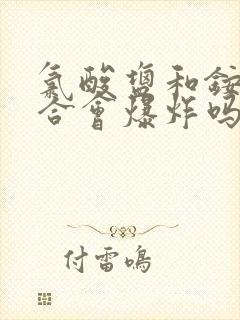 氯酸盐和铵
合会爆炸吗
付雷鸣